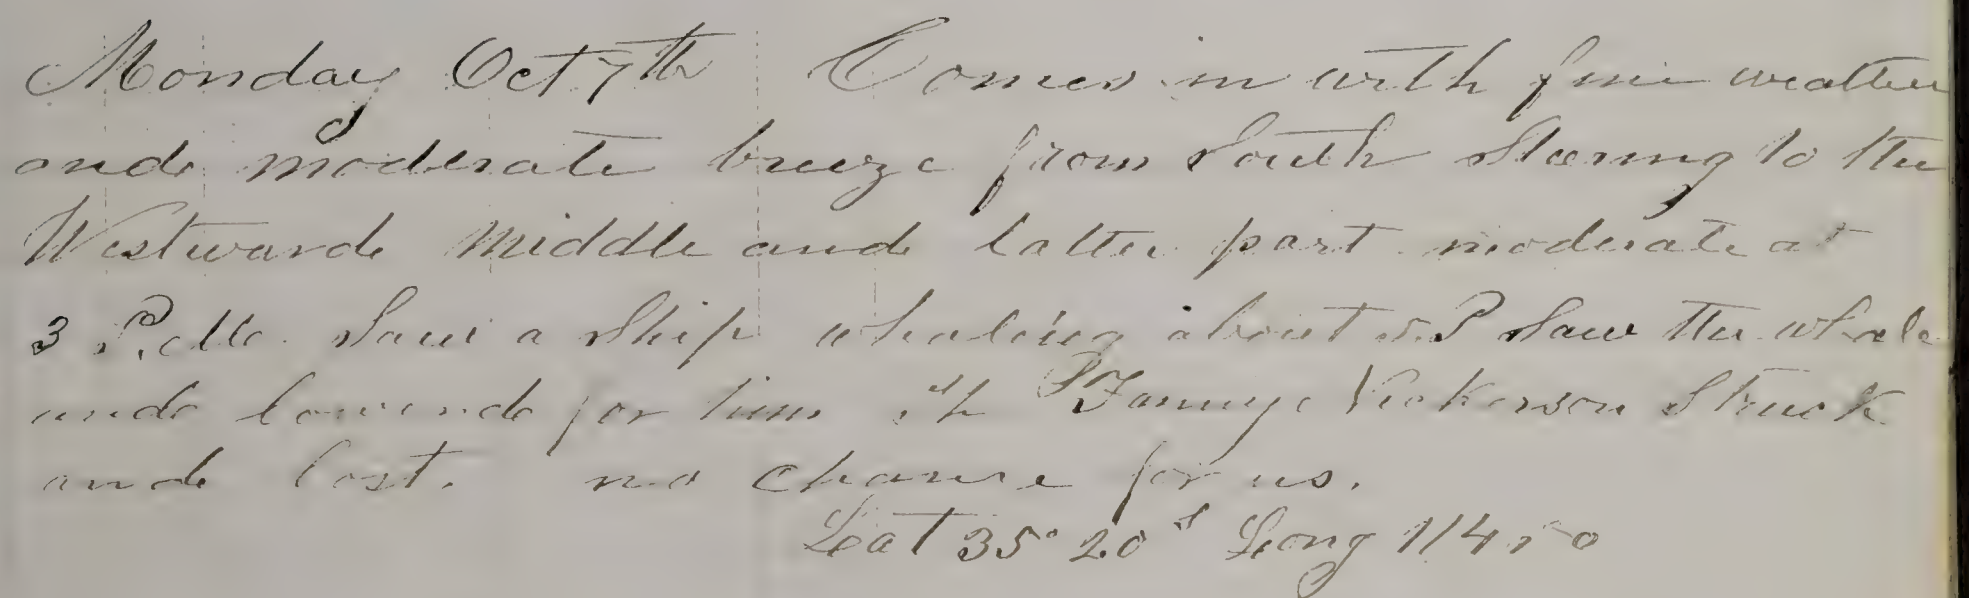 Monday Oct 7th Comes in with fine weather
and moderate breeze from South Steering to the
Westward Middle and latter part moderate at
3 P.M. Saw a Ship whaling about 5 P Saw the whale
and lowered for him
and lost. no chance for us.
Lat 35° 20 S Long 114 50